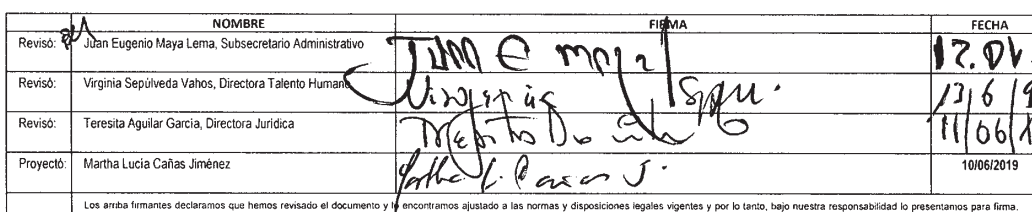 NOMBRE FIRMA FECHA
Revisó: Juan Eugenio Maya Lema, Subsecretario Administrativo
Revisó: Virginia Sepúlveda Vahos, Directora Talento Humano Virginia 13/6/
Revisó: Teresita Aguilar García, Directora Jurídica 11/06/
Proyectó: Martha Lucía Cañas Jiménez Martha L. Cañas J. 10/06/2019
Los arriba firmantes declaramos que hemos revisado el documento y lo encontramos ajustado a las normas y disposiciones legales vigentes y por lo tanto, bajo nuestra responsabilidad lo presentamos para firma.